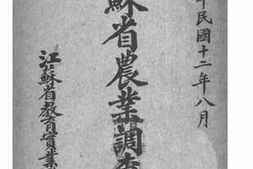 年民國十二年八月
蘇省農業調查
江蘇省教育實業